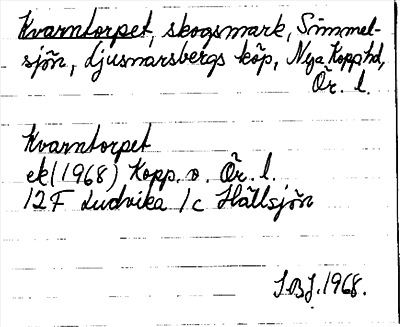 Kvarntorpet, skogsmark, Simmel-
sjön, Ljusnarsbergs köp, Nya Kopp hd,
Ör. l.
Kvarntorpet
ek (1968) Kopp. o. Ör. l.
12F Ludvika 1c Hällsjön
S.B.J. 1968.